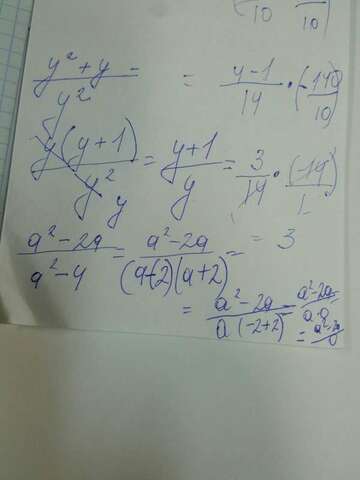 10 10
y² + y / y² =
= y-1 / 14 · (-140 / 10)
y(y+1) / y² y = y+1 / y
= 3 / 14 · (14) / 1
= 3
a² - 2a / a² - 4 = a² - 2a / (a-2)(a+2) =
= a² - 2a / a(-2+2) = a² - 2a / a · 0